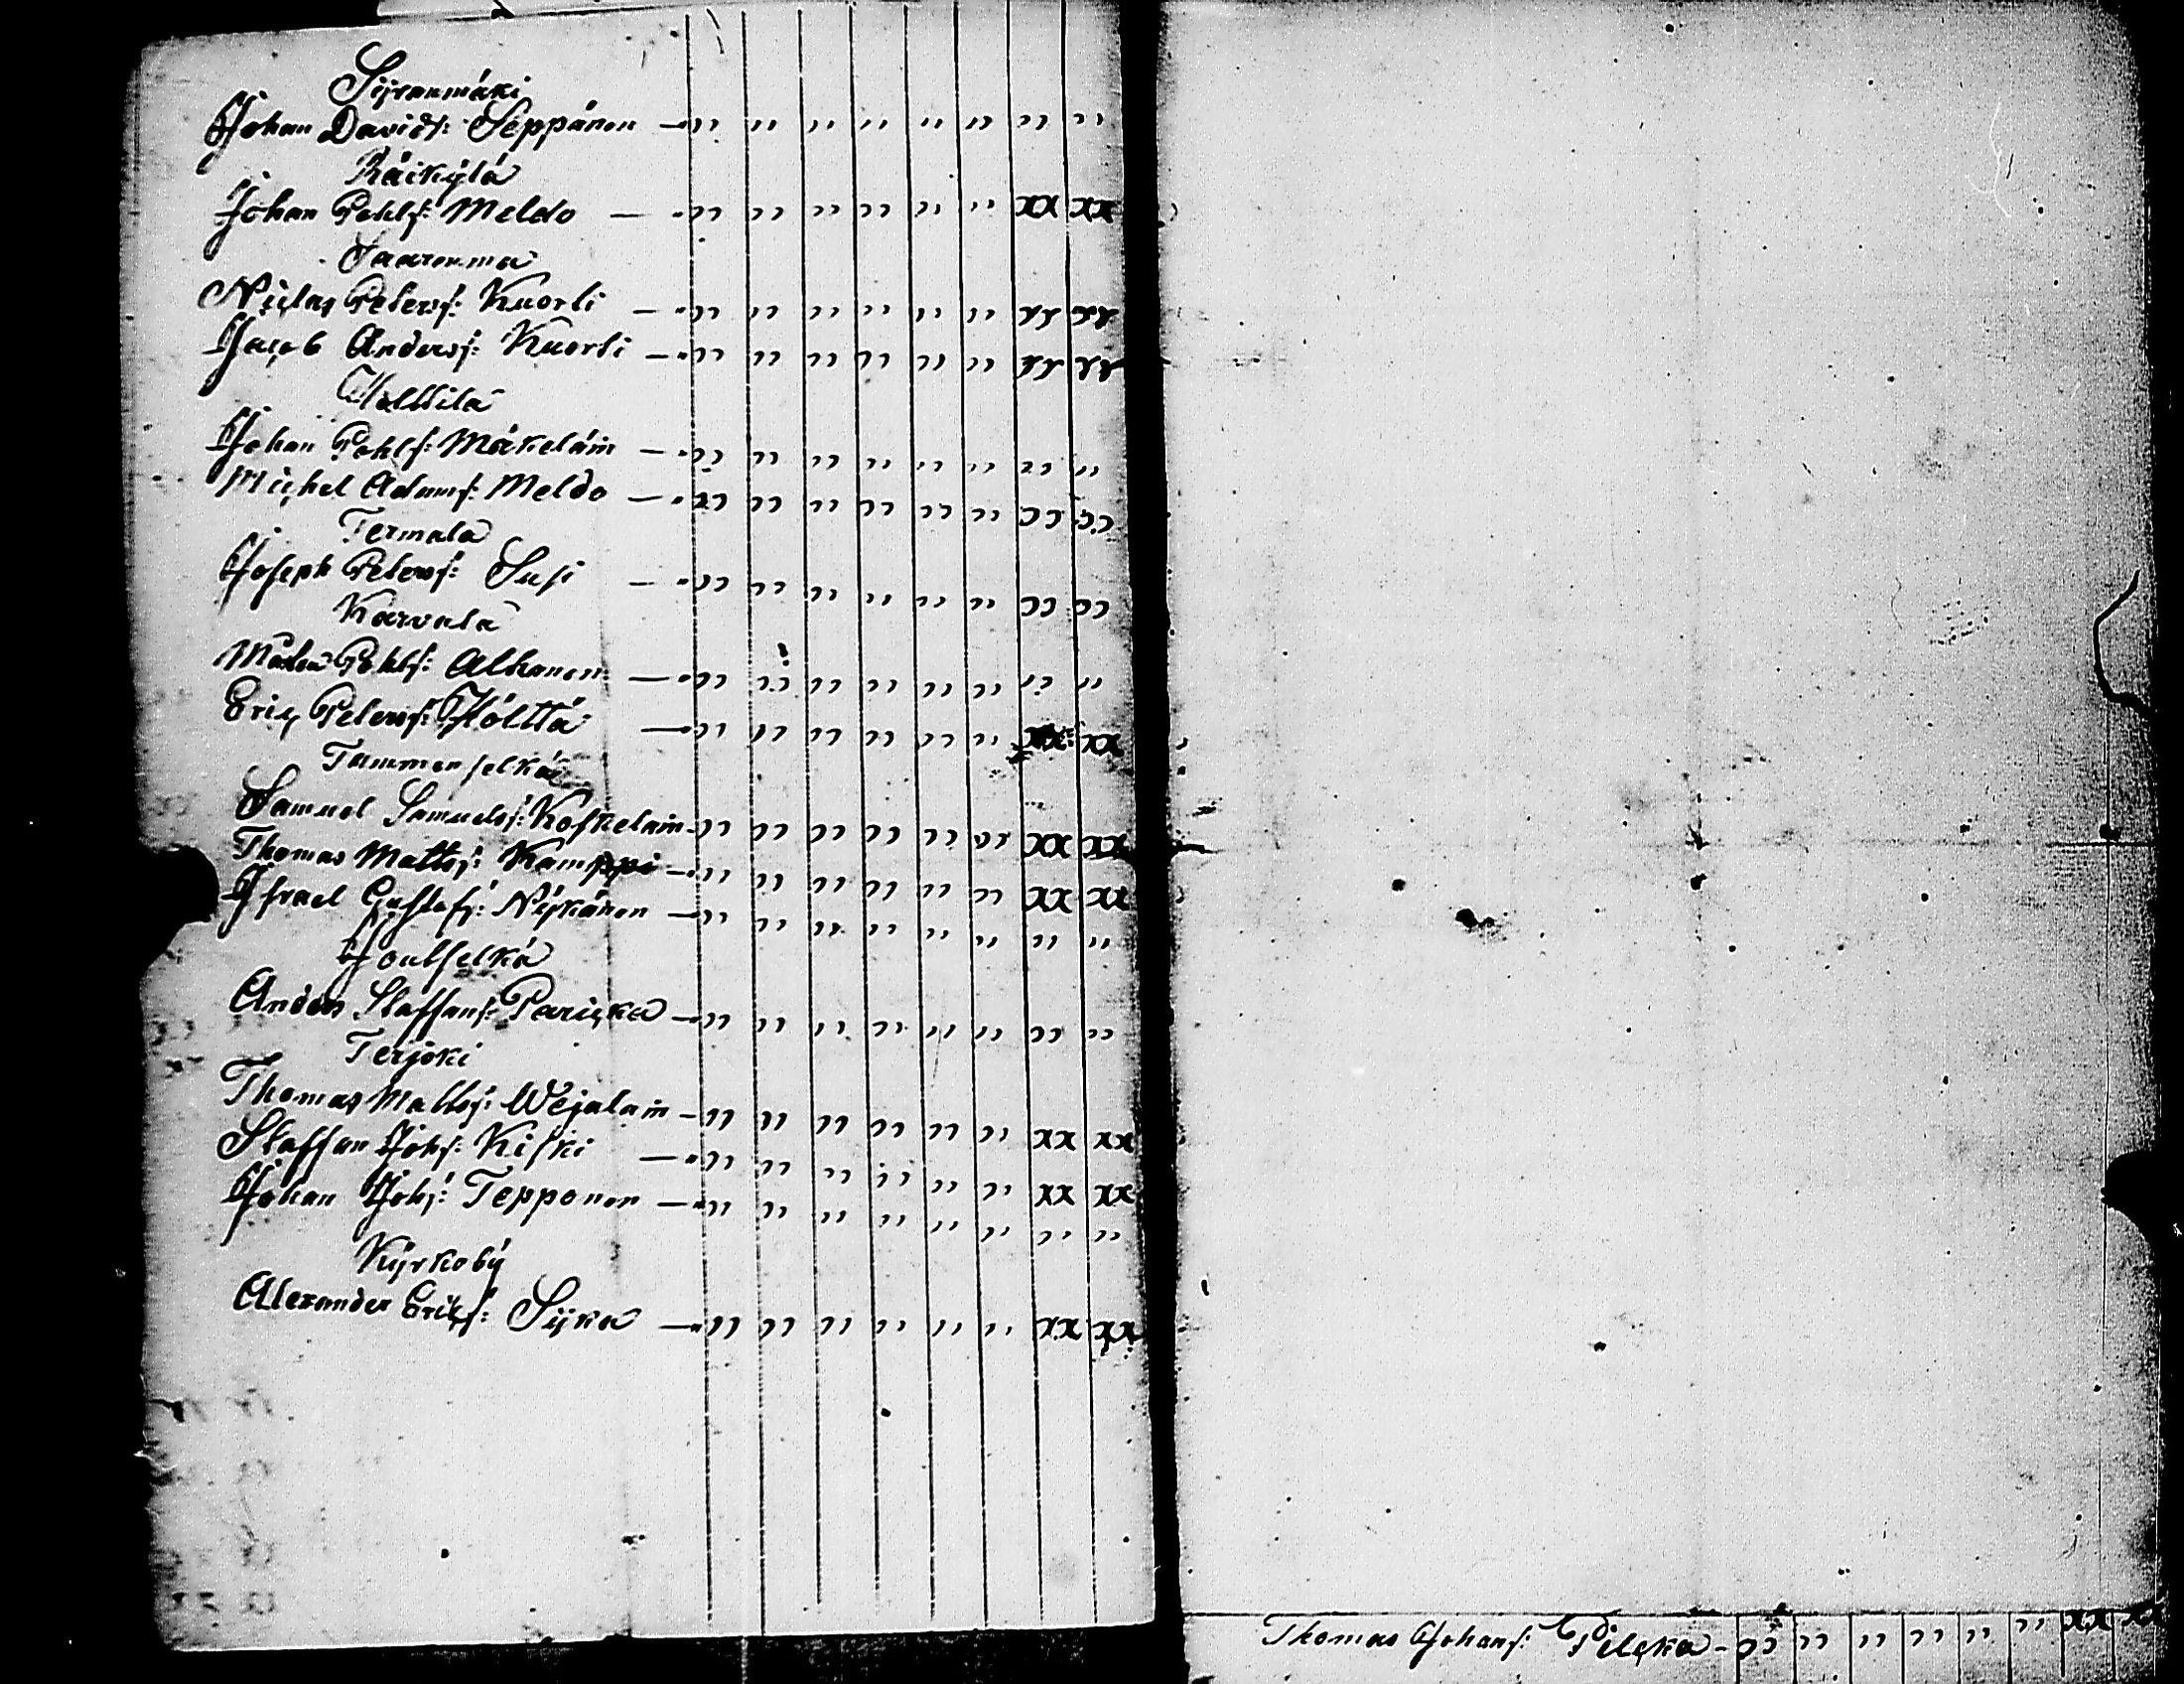 Sÿvänmäki
Johan Davids: Seppänen — " " " " " " " "
Räikÿlä
Johan Pohls: Meldo — " " " " " " xx xx
Saarenma
Niclas Peters: Kuorti — " " " " " " xx xx
Jacob Anders: Kuorti — " " " " " " xx xx
Holttila
Johan Pohls: Mäkeläin — " " " " " " " "
Michel Adams: Meldo — " " " " " " " "
Termala
Joseph Peters: Susi — " " " " " " " "
Karvala
Pohls: Alhanen — " " " " " " " "
Eric Peters: Hölttä — " " " " " " xx xx
Tammenselkä
Samuel Samuels: Koskelain — " " " " " " xx xx
Thomas Matts: Kamppi — " " " " " " xx xx
Israel Gustafs: Nÿkänen — " " " " " " " "
Joutselkä
Anders Staffans: Paricka — " " " " " " " "
Terijoki
Thomas Matts: Wejalain — " " " " " " xx xx
Staffan Johs: Kiski — " " " " " " xx xx
Johan Johs: Tepponen — " " " " " " " "
Kÿrkobÿ
Alexander Erics: Sÿka — " " " " " " xx xx
Thomas Johans: Pilcka — " " " " " " xx xx